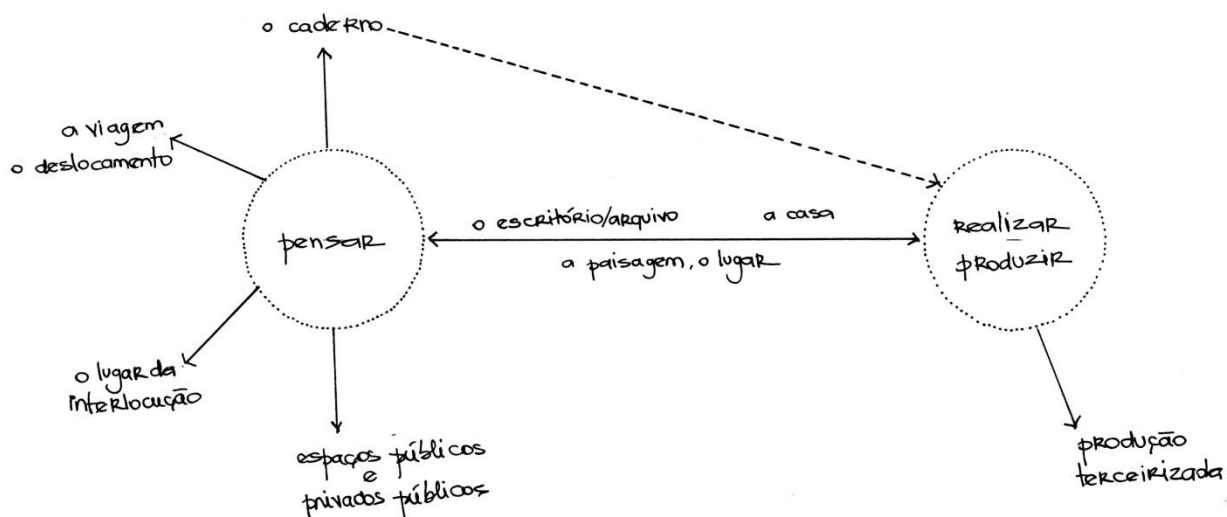 o caderno
a viagem
o deslocamento
pensar
o escritório/arquivo a casa
a paisagem, o lugar
realizar
produzir
o lugar da
interlocução
espaços públicos
e
privados públicos
produção
terceirizada